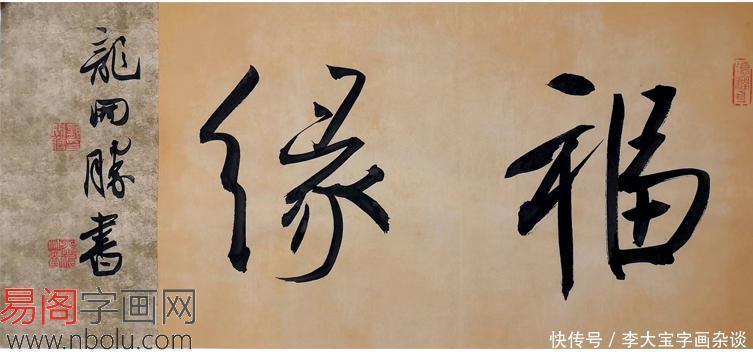 福緣
龍開勝書
易阁字画网
www.nbolu.com
快传号 / 李大宝字画杂谈